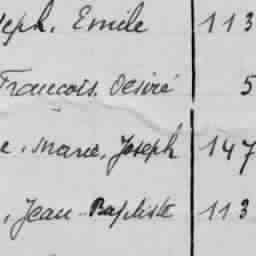 seph. Emile 113
Francois. Desiré 5
e. Marie, Joseph 147
, Jean-Baptiste 113